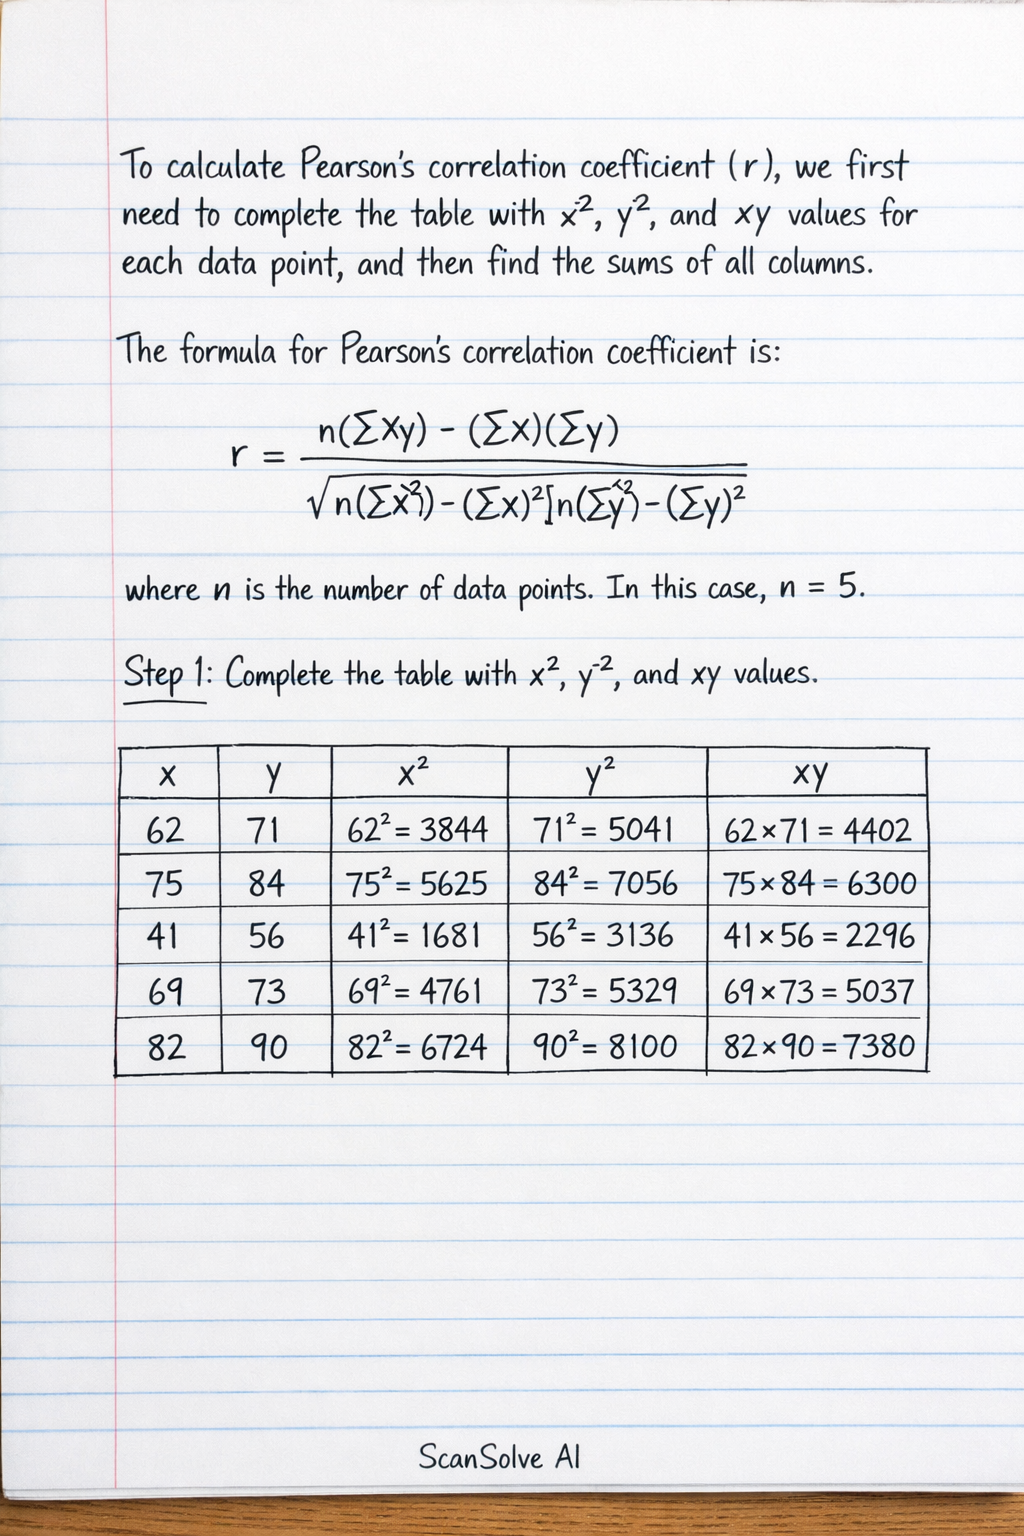 To calculate Pearson's correlation coefficient (r), we first
need to complete the table with x², y², and xy values for
each data point, and then find the sums of all columns.
The formula for Pearson's correlation coefficient is:
r = n(∑xy) - (∑x)(∑y)
√n(∑x²) - (∑x)²]n(∑y²) - (∑y)²
where n is the number of data points. In this case, n = 5.
Step 1: Complete the table with x², y⁻², and xy values.
x y x² y² xy
62 71 62² = 3844 71² = 5041 62×71 = 4402
75 84 75² = 5625 84² = 7056 75×84 = 6300
41 56 41² = 1681 56² = 3136 41×56 = 2296
69 73 69² = 4761 73² = 5329 69×73 = 5037
82 90 82² = 6724 90² = 8100 82×90 = 7380
ScanSolve AI